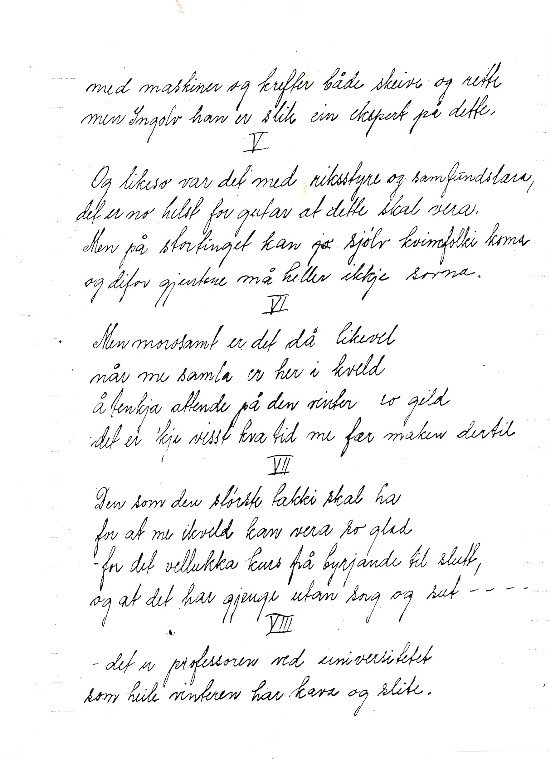 med maskiner og krefter både skeive og rette
men Ingolv han er slik ein ekspert på dette.
V
Og likeso var det med riksstyre og samfundslæra,
det er no helst for gutar at dette skal vera.
Men på stortinget kan jo sjølv kvinnfolki koma
og difor gjentone må heller ikkje sovna.
VI
Men morosamt er det då likevel
når me samla er her i kveld
å tenkja attende på den vinter so gild
det er 'kje visst kva tid me fær maken dertil
VII
Den som den største takki skal ha
for at me ikveld kan vera so glad
- for det vellukka kurs frå byrjande til slutt,
og at det har gjenge utan sorg og sut - - - -
VIII
- det er professoren ved universitetet
som heile vinteren har kava og slite.